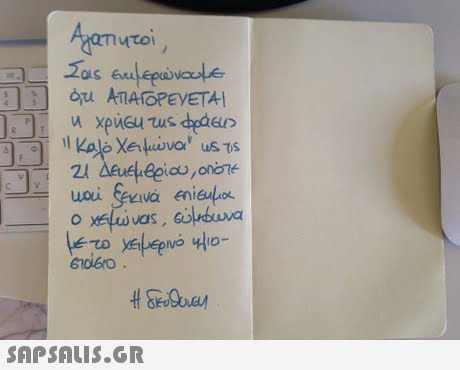 Αγαπητοί,
Σας ενημερώνουμε
ότι ΑΠΑΓΟΡΕΥΕΤΑΙ
η χρήση της φράσης
"Καλό Χειμώνα" ως τις
21 Δεκεμβρίου, οπότε
και ξεκινά επίσημα
ο χειμώνας, σύμφωνα
με το χειμερινό ηλιο-
στάσιο.
Η διεύθυνση
SAPSALIS.GR